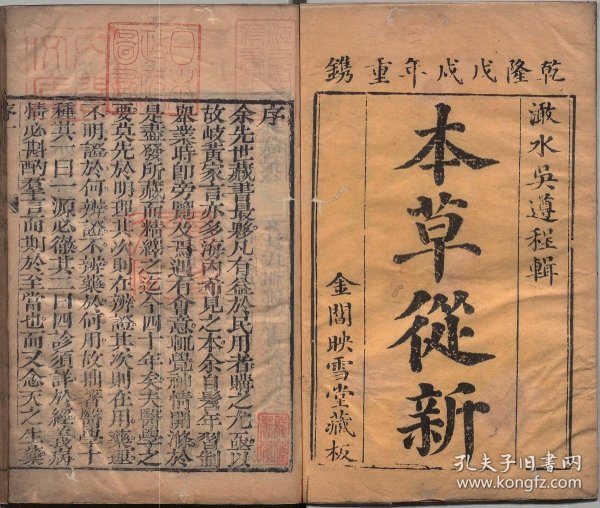 乾隆戊戌年重鐫
澉水吳遵程輯
本草從新
金閶映雪堂藏板
序
余先世藏書最夥凡有益於民用者購之尤亟以
故岐黃家言亦多海內希見之本余自髫年習制
舉業時即旁覽及焉遇有會意輒覺神情開滌於
是盡發所藏而精繹之迄今四十年矣夫醫學之
要莫先於明理其次則在辨證其次則在用藥理
不明證於何辨證不辨藥於何用故拙著醫學十
種其一曰一源必徹其二曰四診須詳於經義病
情必斟酌羣言而期於至當也而又念天之生藥
序 一
孔夫子旧书网
www.kongfz.com